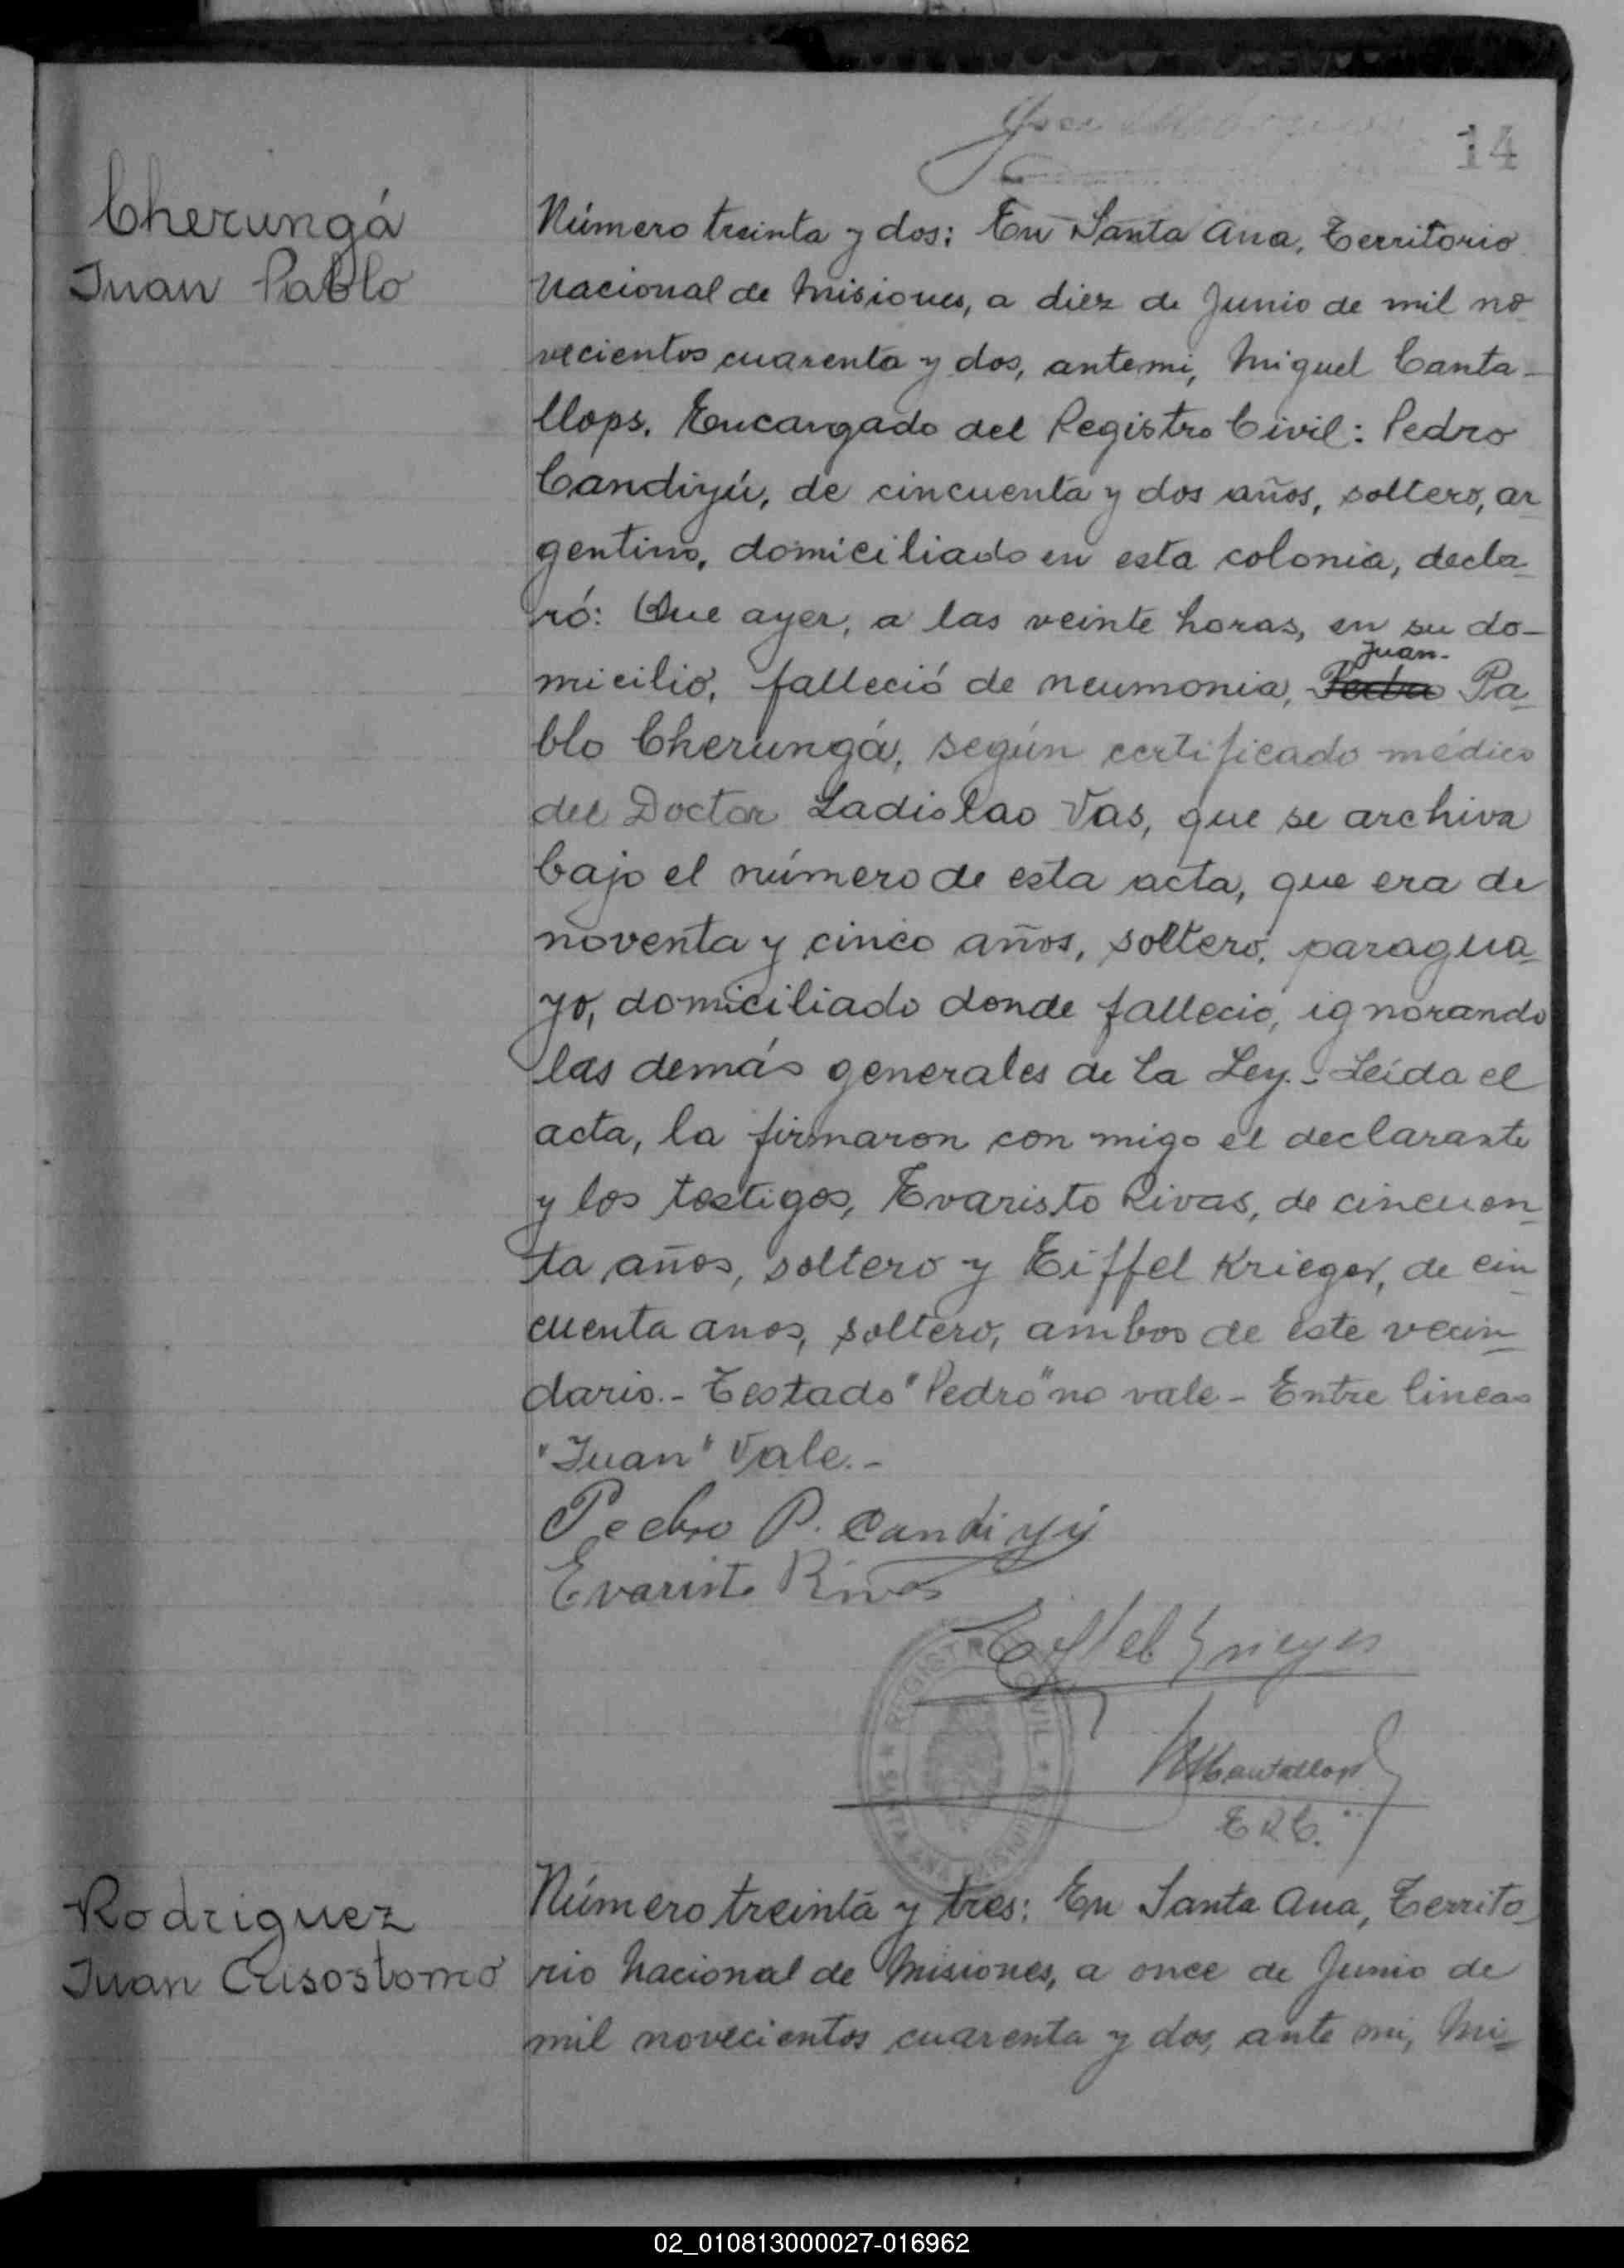 14
Cherungá
Juan Pablo
Número treinta y dos: En Santa Ana, Territorio
Nacional de Misiones, a diez de Junio de mil no-
vecientos cuarenta y dos, antemi, Miguel Canta-
llops. Encargado del Registro Civil: Pedro
Candiyú, de cincuenta y dos años, soltero, ar-
gentino, domiciliado en esta colonia, decla-
ró: Que ayer, a las veinte horas, en su do-
Juan-
micilio, falleció de neumonia, Pedro Pa-
blo Cherungá, según certificado médico
del Doctor Ladislao Vas, que se archiva
bajo el número de esta acta, que era de
noventa y cinco años, soltero, paragua-
yo, domiciliado donde falleció, ignorando
las demás generales de la Ley.- Leída el
acta, la firmaron con migo el declarante
y los testigos, Evaristo Rivas, de cincuen-
ta años, soltero y Eiffel Krieger, de cin-
cuenta anos, soltero, ambos de este vecin-
dario.- Testado "Pedro" no vale - Entre lineas
"Juan" Vale.-
Pedro P. Candiyú
Evaristo Rivas
Eiffel Krieger
REGISTRO CIVIL * MISIONES * SANTA ANA *
MCantallops
E.R.C.
Rodriguez
Juan Crisostomo
Número treinta y tres: En Santa Ana, Territo-
rio Nacional de Misiones, a once de Junio de
mil novecientos cuarenta y dos, ante mi, Mi-
02_010813000027-016962